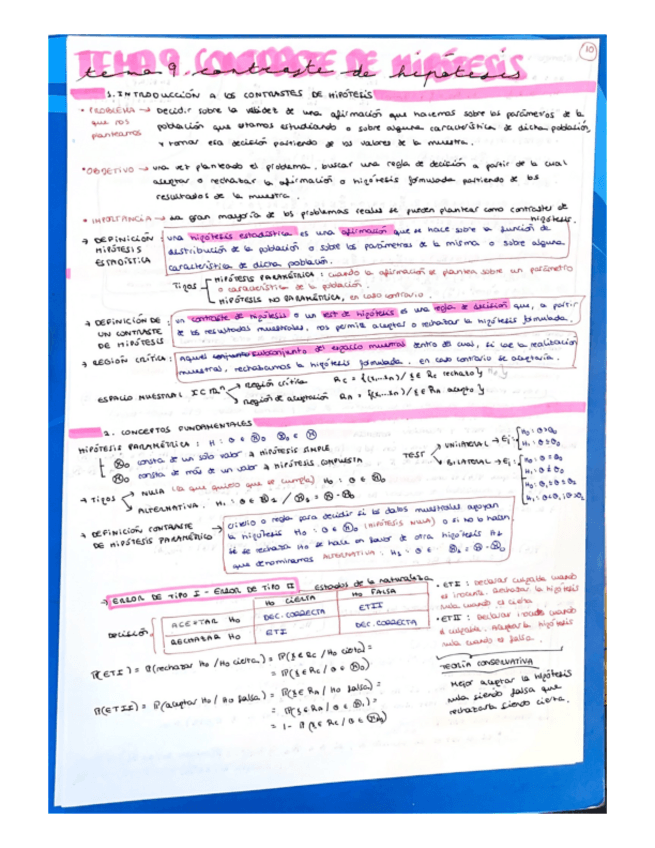 TEMA 9. CONTRASTE DE HIPÓTESIS
tema 9. contraste de hipótesis
10
1. INTRODUCCIÓN A LOS CONTRASTES DE HIPÓTESIS
• PROBLEMA → Decidir sobre la validez de una afirmación que hacemos sobre los parámetros de la
que nos población que estamos estudiando o sobre alguna característica de dicha población,
planteamos y tomar esa decisión partiendo de los valores de la muestra.
• OBJETIVO → una vez planteado el problema, buscar una regla de decisión a partir de la cual
aceptar o rechazar la afirmación o hipótesis formulada partiendo de los
resultados de la muestra.
• IMPORTANCIA → La gran mayoría de los problemas reales se pueden plantear como contrastes de
hipótesis.
→ DEFINICIÓN : una hipótesis estadística es una afirmación que se hace sobre la función de
HIPÓTESIS distribución de la población o sobre los parámetros de la misma o sobre alguna
ESTADÍSTICA característica de dicha población.
Tipos HIPÓTESIS PARAMÉTRICA : cuando la afirmación se plantea sobre un parámetro
o característica de la población.
HIPÓTESIS NO PARAMÉTRICA, en caso contrario.
→ DEFINICIÓN DE : un contraste de hipótesis o un test de hipótesis es una regla de decisión que, a partir
UN CONTRASTE de los resultados muestrales, nos permite aceptar o rechazar la hipótesis formulada.
DE HIPÓTESIS
→ REGIÓN CRÍTICA : Aquel conjunto subconjunto del espacio muestral dentro del cual, si cae la realización
muestral, rechazamos la hipótesis formulada. en caso contrario se aceptaría.
ESPACIO MUESTRAL : X ⊂ ℝⁿ → Región crítica Rc = {(x₁...xₙ) / x ∈ Rc rechazo}
→ Región de aceptación RA = {(x₁...xₙ) / x ∈ RA acepto}
2. CONCEPTOS FUNDAMENTALES
HIPÓTESIS PARAMÉTRICA : H : θ ∈ Θ₀ Θ₀ ⊂ Θ
Θ₀ consta de un sólo valor → HIPÓTESIS SIMPLE
Θ₀ consta de más de un valor → HIPÓTESIS COMPUESTA
TEST → UNILATERAL → Ej:
→ BILATERAL → Ej:
→ Tipos → NULA (la que quiero que se cumpla) H₀ : θ ∈ Θ₀
→ ALTERNATIVA. H₁ : θ ∈ Θ₁ / Θ₁ = Θ - Θ₀
→ DEFINICIÓN CONTRASTE criterio o regla para decidir si los datos muestrales apoyan
DE HIPÓTESIS PARAMÉTRICO la hipótesis H₀ : θ ∈ Θ₀ (HIPÓTESIS NULA) o si no lo hacen.
Si se rechaza H₀ se hace en favor de otra hipótesis H₁
que denominamos ALTERNATIVA : H₁ : θ ∈ Θ₁ = Θ - Θ₀
→ ERROR DE TIPO I - ERROR DE TIPO II
Estados de la naturaleza
H₀ CIERTA H₀ FALSA
Decisión ACEPTAR H₀ DEC. CORRECTA ETII
RECHAZAR H₀ ETI DEC. CORRECTA
• ETI : Declarar culpable cuando
es inocente. Rechazar la hipótesis
nula cuando es cierta
• ETII : Declarar inocente cuando
es culpable. Aceptar la hipótesis
nula cuando es falsa.
P(ETI) = P(rechazar H₀ / H₀ cierta) = P(x ∈ Rc / H₀ cierta) =
= P(x ∈ Rc / θ ∈ Θ₀)
P(ETII) = P(aceptar H₀ / H₀ falsa) = P(x ∈ RA / H₀ falsa) =
= P(x ∈ RA / θ ∈ Θ₁) =
= 1 - P(x ∈ Rc / θ ∈ Θ₁)
TEORÍA CONSERVATIVA
Mejor aceptar la hipótesis
nula siendo falsa que
rechazarla siendo cierta.